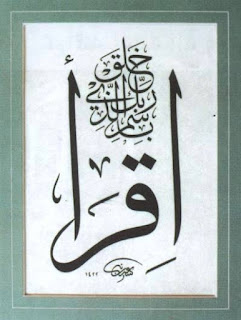 اِقرَأ
باسم ربك الذي
خلق
١٤٢٢